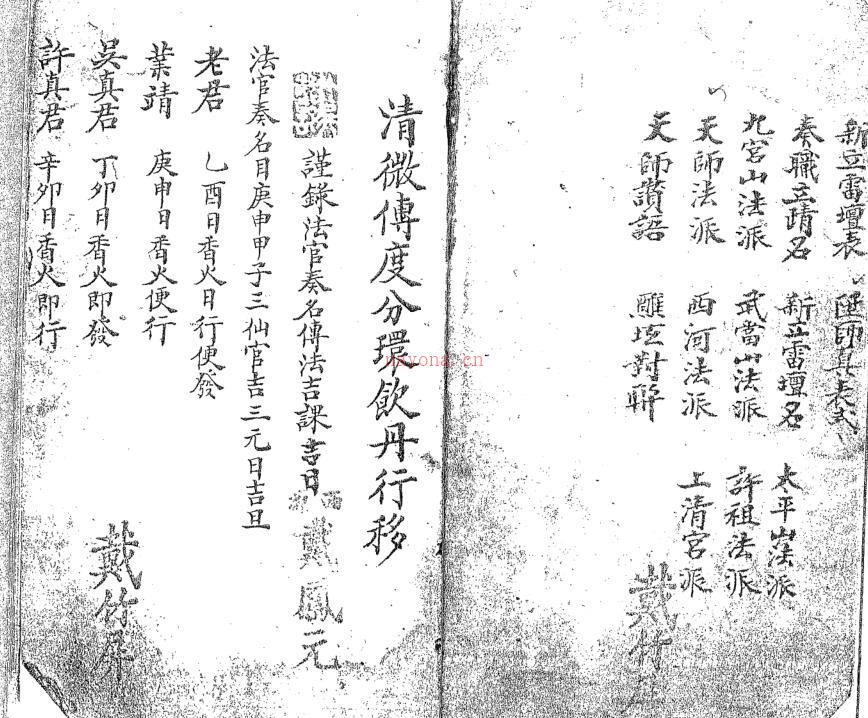 新立雷壇表 匝師真表式
奏職立靖名 新立雷壇名 太平山法派
九宮山法派 武當山法派 許祖法派
天師法派 西河法派 上清宮派
天師讚語 醮垣對聯
戴竹
清微傳度分環飲丹行移
謹錄法官奏名傳法吉課吉日
戴鳳元
法官奏名目庚申甲子三仙官吉三元日吉旦
老君 乙酉日香火日行便發
葉靖 庚申日香火便行
吳真君 丁卯日香火即發
許真君 辛卯日香火即行
戴竹屏
nayona.cn